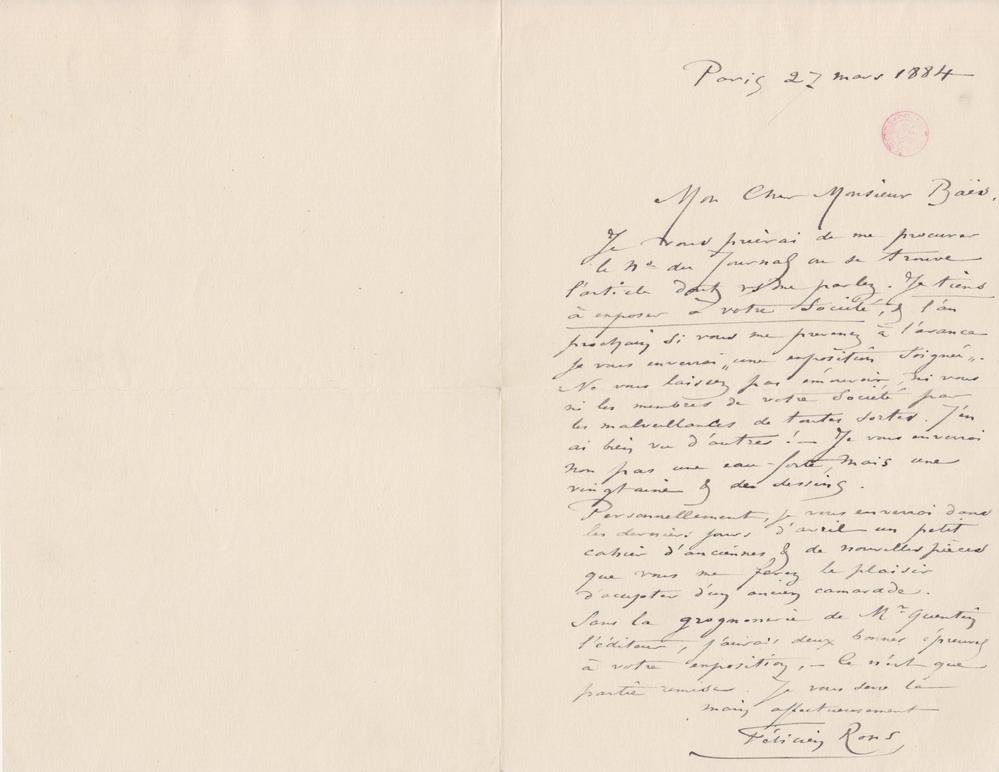 Paris 27 mars 1884
Mon Cher Monsieur Baës,
Je vous prierai de me procurer
le No du Journal ou se trouve
l'article dont vs me parlez. Je tiens
à exposer à votre Société, & l'an
prochain si vous me prevenez à l'avance
je vous enverrai „une exposition soignée".
Ne vous laissez pas émouvoir, ni vous
ni les membres de votre Société par
les malveillances de toutes sortes. J'en
ai bien vu d'autres ! — Je vous enverrai
non pas une eau-forte, mais une
vingtaine & des dessins.
Personnellement, je vous enverrai dans
les derniers jours d'avril un petit
cahier d'anciennes & de nouvelles pièces
que vous me ferez le plaisir
d'accepter d'un ancien camarade.
Sans la grognonerie de Mr Quentin
l'éditeur, j'aurais deux bonnes épreuves
à votre exposition, — ce n'est que
partie remise. Je vous serre la
main affectueusement
Félicien Rops